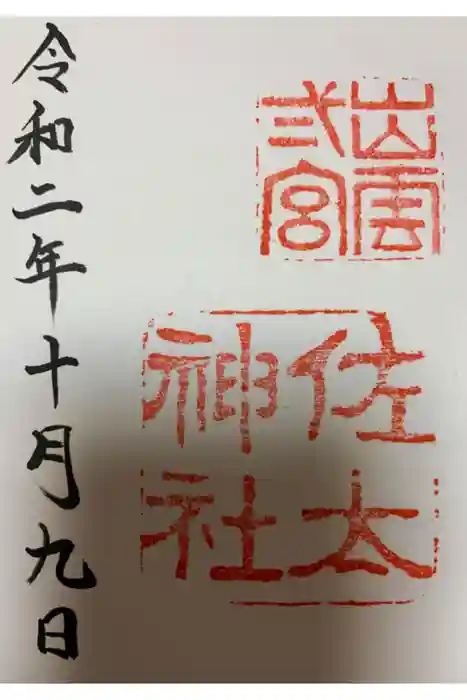 出雲
弐宮
佐太
神社
令和二年十月九日